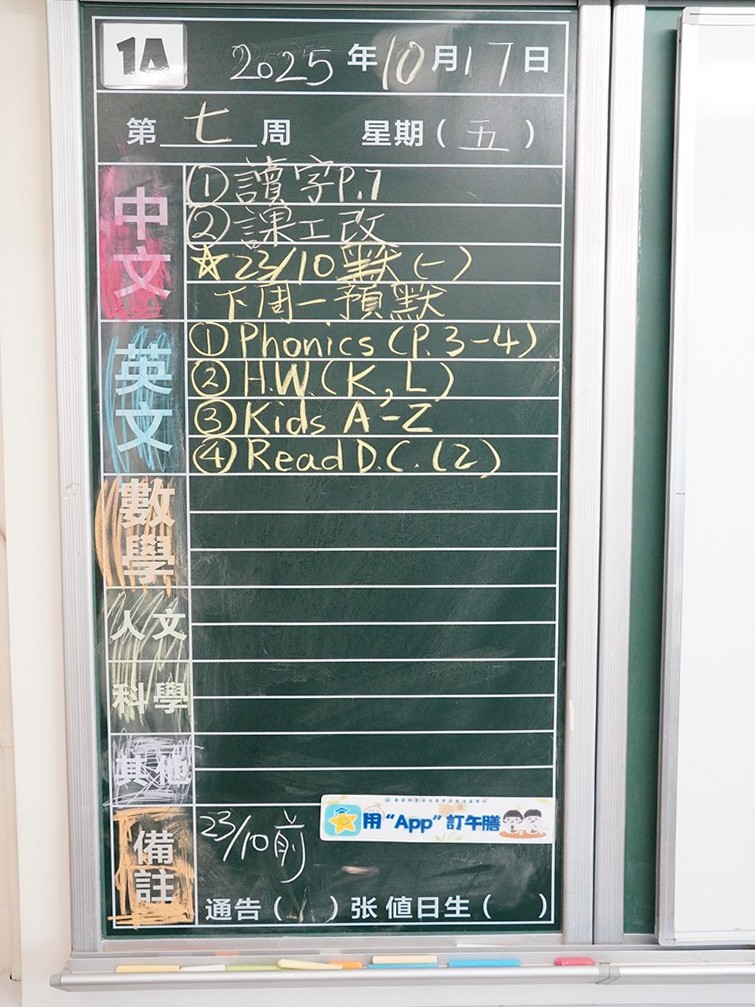 1A 2025年10月17日
第七周 星期(五)
中文
①讀字P.7
②課工改
☆23/10默(一)
下周一預默
英文
①Phonics (P.3-4)
②H.W.(K, L)
③Kids A-Z
④Read D.C.(2)
數學
人文
科學
其他
備註
23/10前
用“App”訂午膳
通告( )张 值日生( )